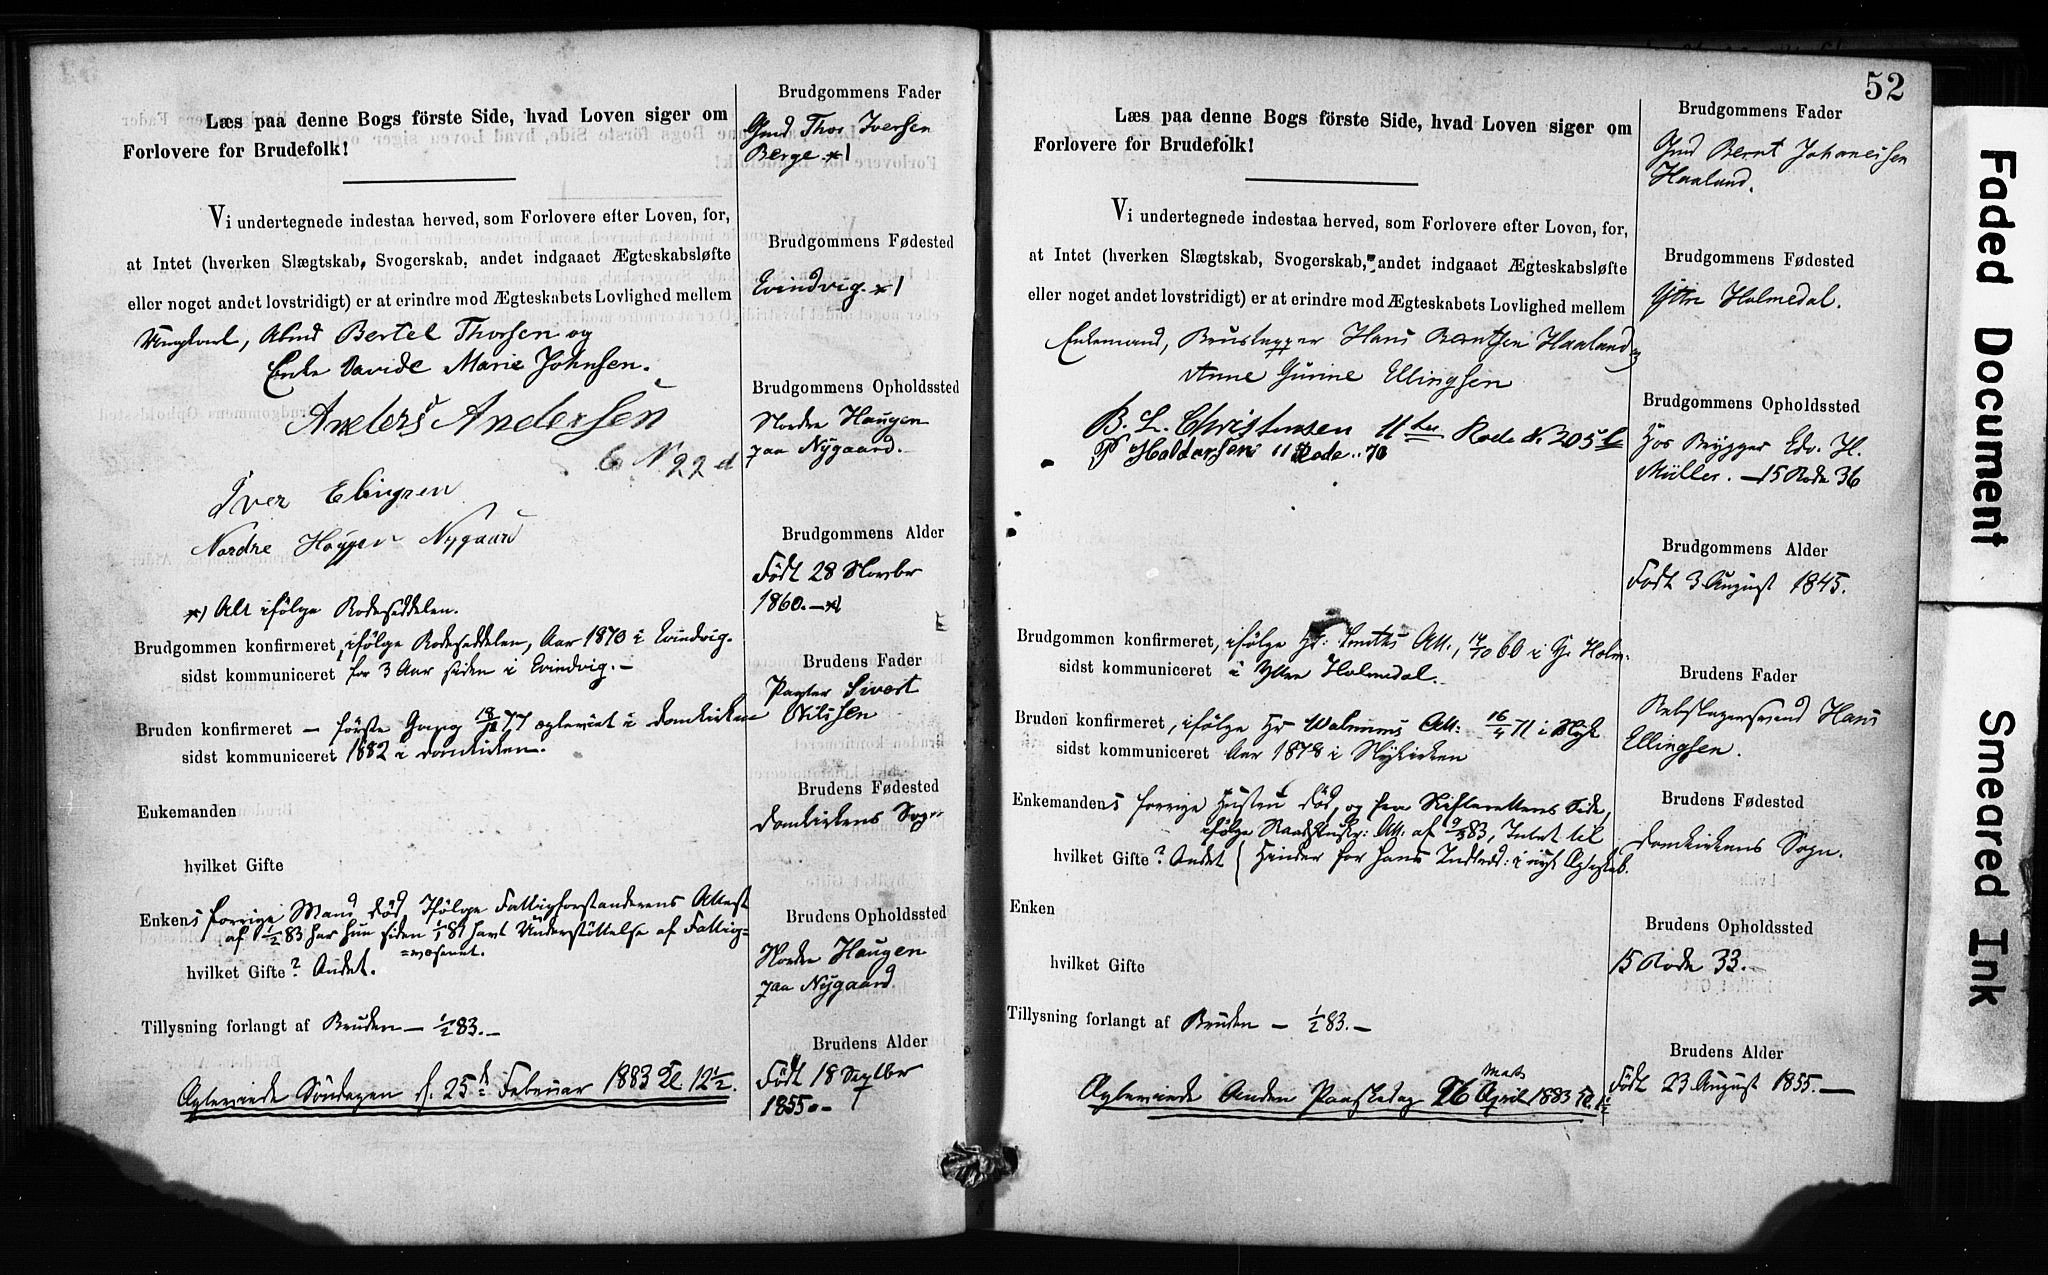 Læs paa denne Bogs förste Side, hvad Loven siger om
Forlovere for Brudefolk!
Vi undertegnede indestaa herved, som Forlovere efter Loven, for,
at Intet (hverken Slægtskab, Svogerskab, andet indgaaet Ægteskabsløfte
eller noget andet lovstridigt) er at erindre mod Ægteskabets Lovlighed mellem
Ungkarl, Arbmd Bertel Thorsen og
Enke Davide Marie Johnsen.
Anders Andersen
6 N 22 d
Iver Elingsen
Nordre Höygen Nygaard
*) Alt ifölge Rodeseddelen.
Brudgommen konfirmeret, ifölge Rodeseddelen, Aar 1870 i Evindvig.
sidst kommuniceret for 3 Aar siden i Evindvig. —
Bruden konfirmeret — förste Gang 77 ægteviet i Domkirken
sidst kommuniceret 1882 i Domkirken.
Enkemanden
hvilket Gifte
Enkens forrige Mand död. Ifölge Fattigforstanderens Attest
af 1/2 83 har hun siden 1/1 81 havt Understöttelse af Fattig=
=væsenet.
hvilket Gifte? Andet.
Tillysning forlangt af Bruden — 1/2 83. —
Ægteviede Söndagen d. 25de Februar 1883 Kl 12 1/2.
Brudgommens Fader
Gmd Thor Iversen
Berge *)
Brudgommens Fødested
Evindvig *)
Brudgommens Opholdssted
Nordre Haugen
paa Nygaard.
Brudgommens Alder
Födt 28 Novbr
1860. — *)
Brudens Fader
Pagter Sivert
Nilsen
Brudens Fødested
Domkirkens Sogn
Brudens Opholdssted
Nordre Haugen
paa Nygaard
Brudens Alder
Födt 18 Septbr
1855. —
52
Læs paa denne Bogs förste Side, hvad Loven siger om
Forlovere for Brudefolk!
Vi undertegnede indestaa herved, som Forlovere efter Loven, for,
at Intet (hverken Slægtskab, Svogerskab, andet indgaaet Ægteskabsløfte
eller noget andet lovstridigt) er at erindre mod Ægteskabets Lovlighed mellem
Enkemand, Brustapper Hans Berntsen Haaland og
Anne Gurine Ellingsen
B. L. Christensen 11te Rode N. 205 b
P Haldorsen 11 Rode .. 70
Brudgommen konfirmeret, ifölge Hr: Smiths Att., 60 i Y. Holm.
sidst kommuniceret i Yttre Holmedal.
Bruden konfirmeret, ifölge Hr Walnums Att: 16/4 71 i Nyk
sidst kommuniceret Aar 1878 i Nykirken
Enkemandens forrige Hustru död, og fra Skifterettens Side,
ifölge Att. af 83, Intet til
hvilket Gifte? Andet { Hinder for hans Indtræd: i nyt Ægtskab.
Enken
hvilket Gifte
Tillysning forlangt af Bruden — 1/2 83. —
Marts
Ægteviede Anden Paaskedag 26 April 1883 Kl.
Brudgommens Fader
Gmd Bernt Johanesen
Haaland.
Brudgommens Fødested
Yttre Holmedal.
Brudgommens Opholdssted
Hos Brygger Edv. H.
Müller. — 15 Rode 36
Brudgommens Alder
Födt 3 August 1845.
Brudens Fader
Rebslagersvend Hans
Ellingsen.
Brudens Fødested
Domkirkens Sogn.
Brudens Opholdssted
15 Rode 33. —
Brudens Alder
Födt 23 August 1855. —
Faded Document
Smeared Ink